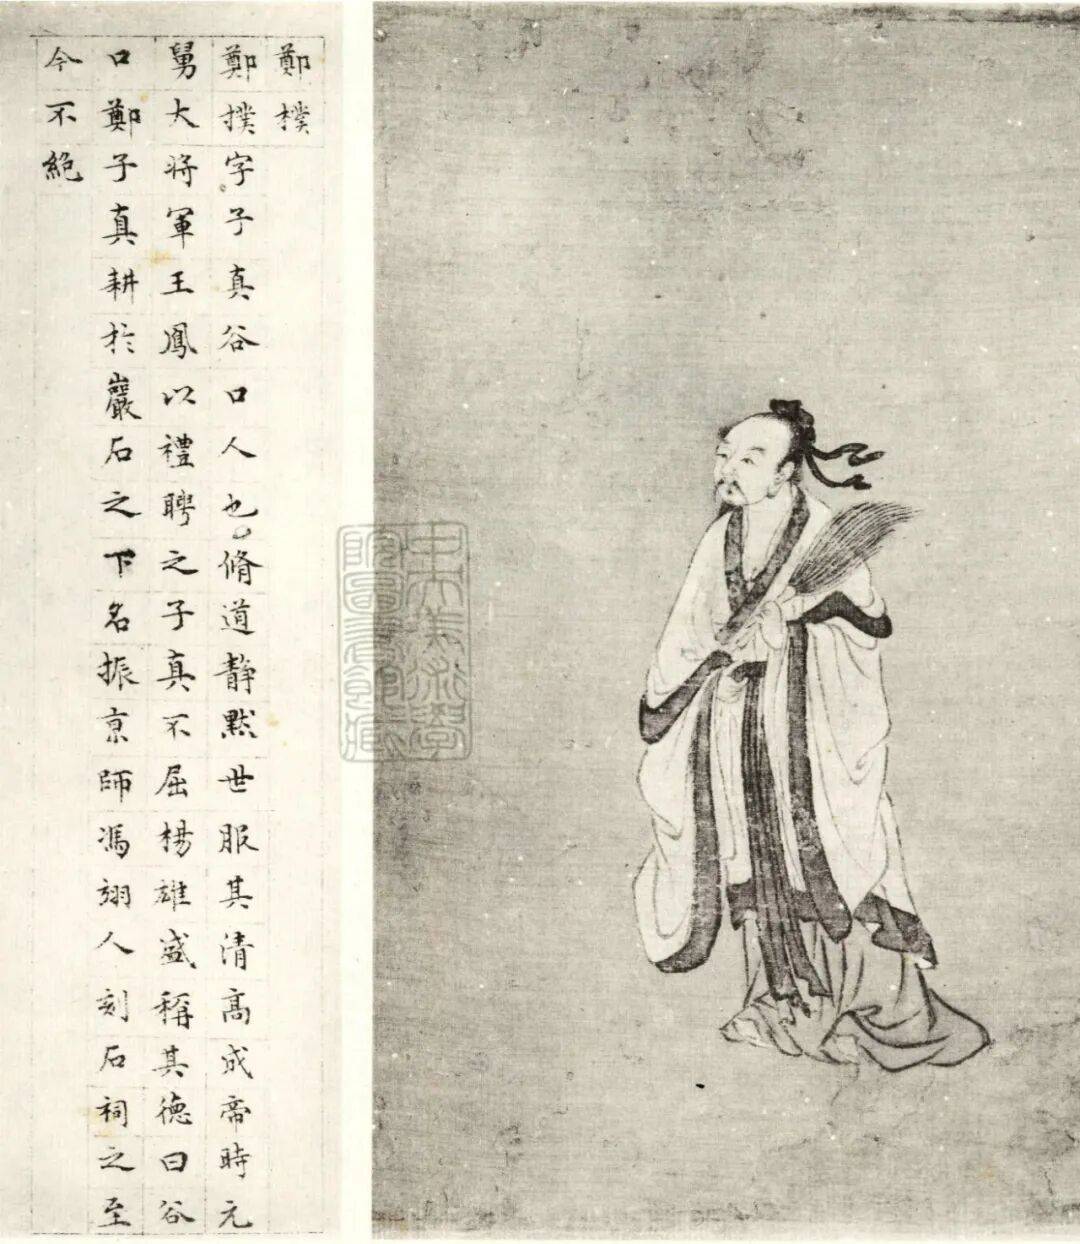 鄭樸
鄭撲字子真谷口人也脩道靜默世服其清高成帝時元
舅大將軍王鳳以禮聘之子真不屈楊雄盛稱其德曰谷
口鄭子真耕於巖石之下名振京師馮翊人刻石祠之至
今不絕
中央美術學
院圖書館藏